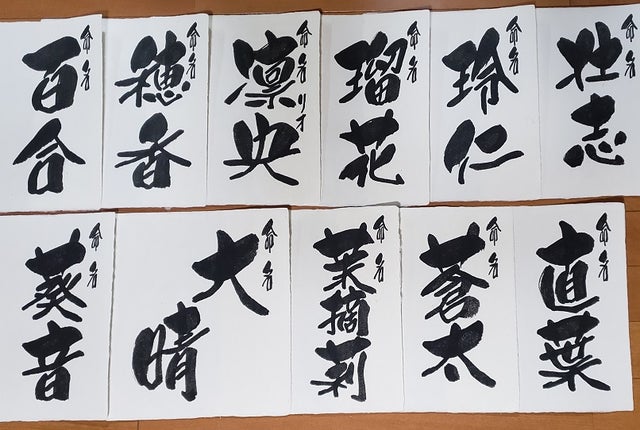 命名
壮志
命名
玲仁
命名
瑠花
命名 リオ
凛央
命名
穂香
命名
百合
命名
直葉
命名
蒼太
命名
茉摘莉
命名
大晴
命名
葵音